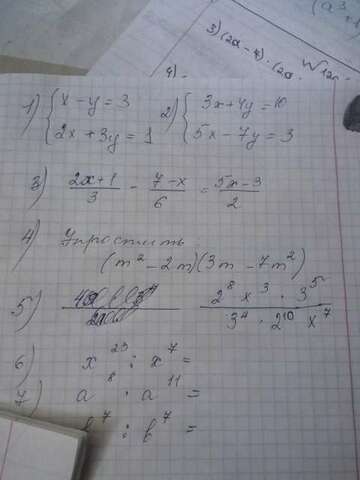 3) (2a - 4) · (2a
4)
1) { x - y = 3
2x + 3y = 1
2) { 3x + 4y = 10
5x - 7y = 3
3) (2x+1)/3 - (7-x)/6 = (5x-3)/2
4) Упростить:
(m² - 2m)(3m - 7m²)
5) (2⁸ x³ · 3⁵)/(3⁴ · 2¹⁰ x⁷)
6) x²³ : x⁷ =
7) a⁸ : a¹¹ =
b⁷ : b⁷ =